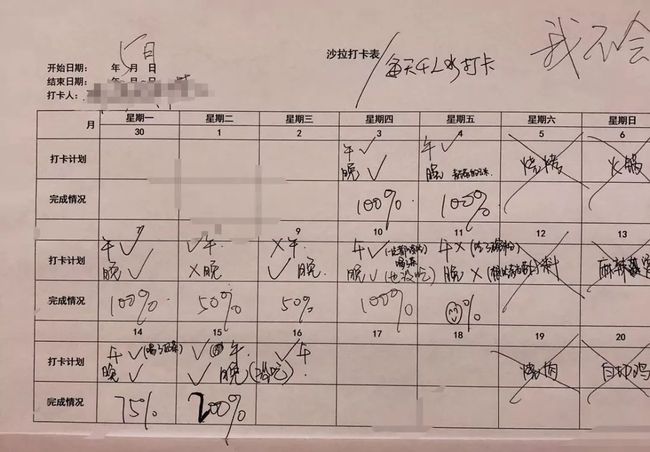 沙拉打卡表
每天4L水打卡
我不会
开始日期： 年 月 日
5日
结束日期： 年 月 日
打卡人：
月 星期一 星期二 星期三 星期四 星期五 星期六 星期日
30 1 2 3 4 5 6
打卡计划 午✓ 午✓ 烧烤 火锅
晚✓ 晚
完成情况 100% 100%
9 10 11 12 13
打卡计划 午✓ ✓午 ×午 午✓ 午×
晚✓ ×晚 ✓晚 晚✓(也没吃) 晚×
完成情况 100% 50% 50% 100% %
14 15 16 17 18 19 20
打卡计划 午✓ ✓午 ✓午 烤肉
晚✓ ✓晚
完成情况 75% 200%